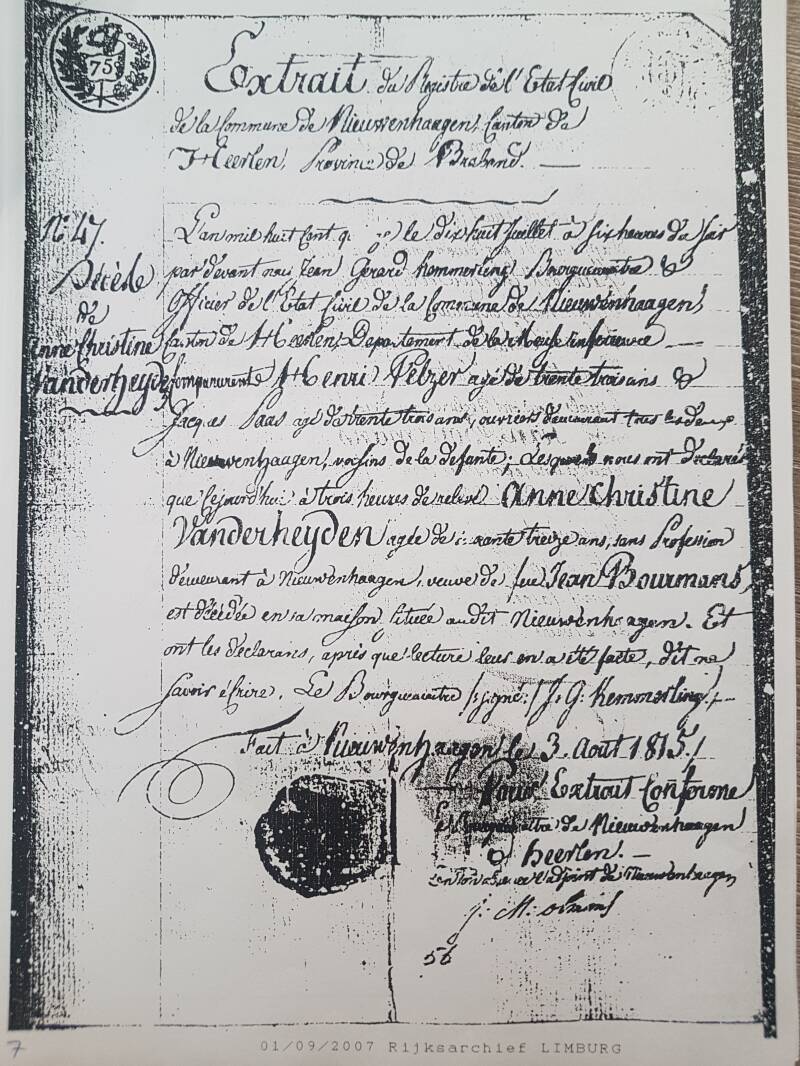 75
Extrait du Registre de l'Etat Civil
de la Commune de Nieuwenhaagen, Canton de
Heerlen, Province de Braband. —
N° 47.
Décède
de
Anne Christine
Vanderheyden
L'an mil huit Cent le dix huit Juillet à six heures du soir
par devant nous Jean Gerard Hemmerling Bourguemaitre &
Officier de l'Etat Civil de la Commune de Nieuwenhaagen,
Canton de Heerlen, Departement de la Meuse inferieure —
Comparurente Henri Pelzer agé de trente trois ans &
Jacques Paas agé de trente trois ans, ouvriers demeurant tous les deux
à Nieuwenhaagen, voisins de la defante; Lesquels nous ont declarés
que cejourd'hui à trois heures de relevé Anne Christine
Vanderheyden agée de treize ans, sans Profession
demeurant à Nieuwenhaagen, veuve de feu Jean Bourmans,
est décédée en sa maison située audit Nieuwenhaagen. Et
ont les declarans, après que lecture leur en a été faite, dit ne
savoir écrire. Le Bourguemaitre /signé:/ J. G: Hemmerling,
Fait à Nieuwenhaagen le 3. Aout 1815,
Pour Extrait Conforme
Le Bourguemaitre de Nieuwenhaagen
à Heerlen. —
l'adjoint de Nieuwenhaagen
J. M:
56
7
01/09/2007 Rijksarchief LIMBURG